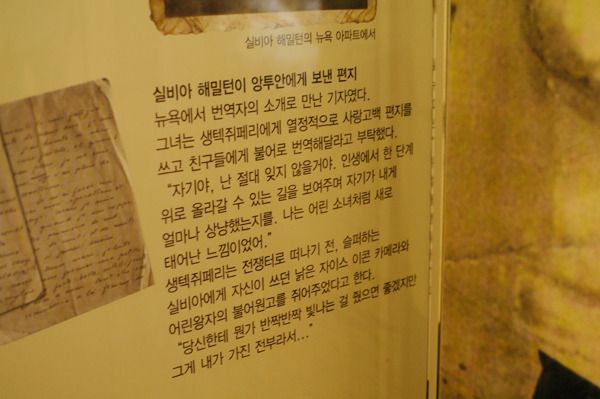 실비아 해밀턴의 뉴욕 아파트에서
실비아 해밀턴이 앙투안에게 보낸 편지
뉴욕에서 번역자의 소개로 만난 기자였다.
그녀는 생텍쥐페리에게 열정적으로 사랑고백 편지를
쓰고 친구들에게 불어로 번역해달라고 부탁했다.
"자기야, 난 절대 잊지 않을거야. 인생에서 한 단계
위로 올라갈 수 있는 길을 보여주며 자기가 내게
얼마나 상냥했는지를. 나는 어린 소녀처럼 새로
태어난 느낌이었어."
생텍쥐페리는 전쟁터로 떠나기 전, 슬퍼하는
실비아에게 자신이 쓰던 낡은 자이스 이콘 카메라와
어린왕자의 불어원고를 쥐어주었다고 한다.
"당신한테 뭔가 반짝반짝 빛나는 걸 줬으면 좋겠지만
그게 내가 가진 전부라서..."